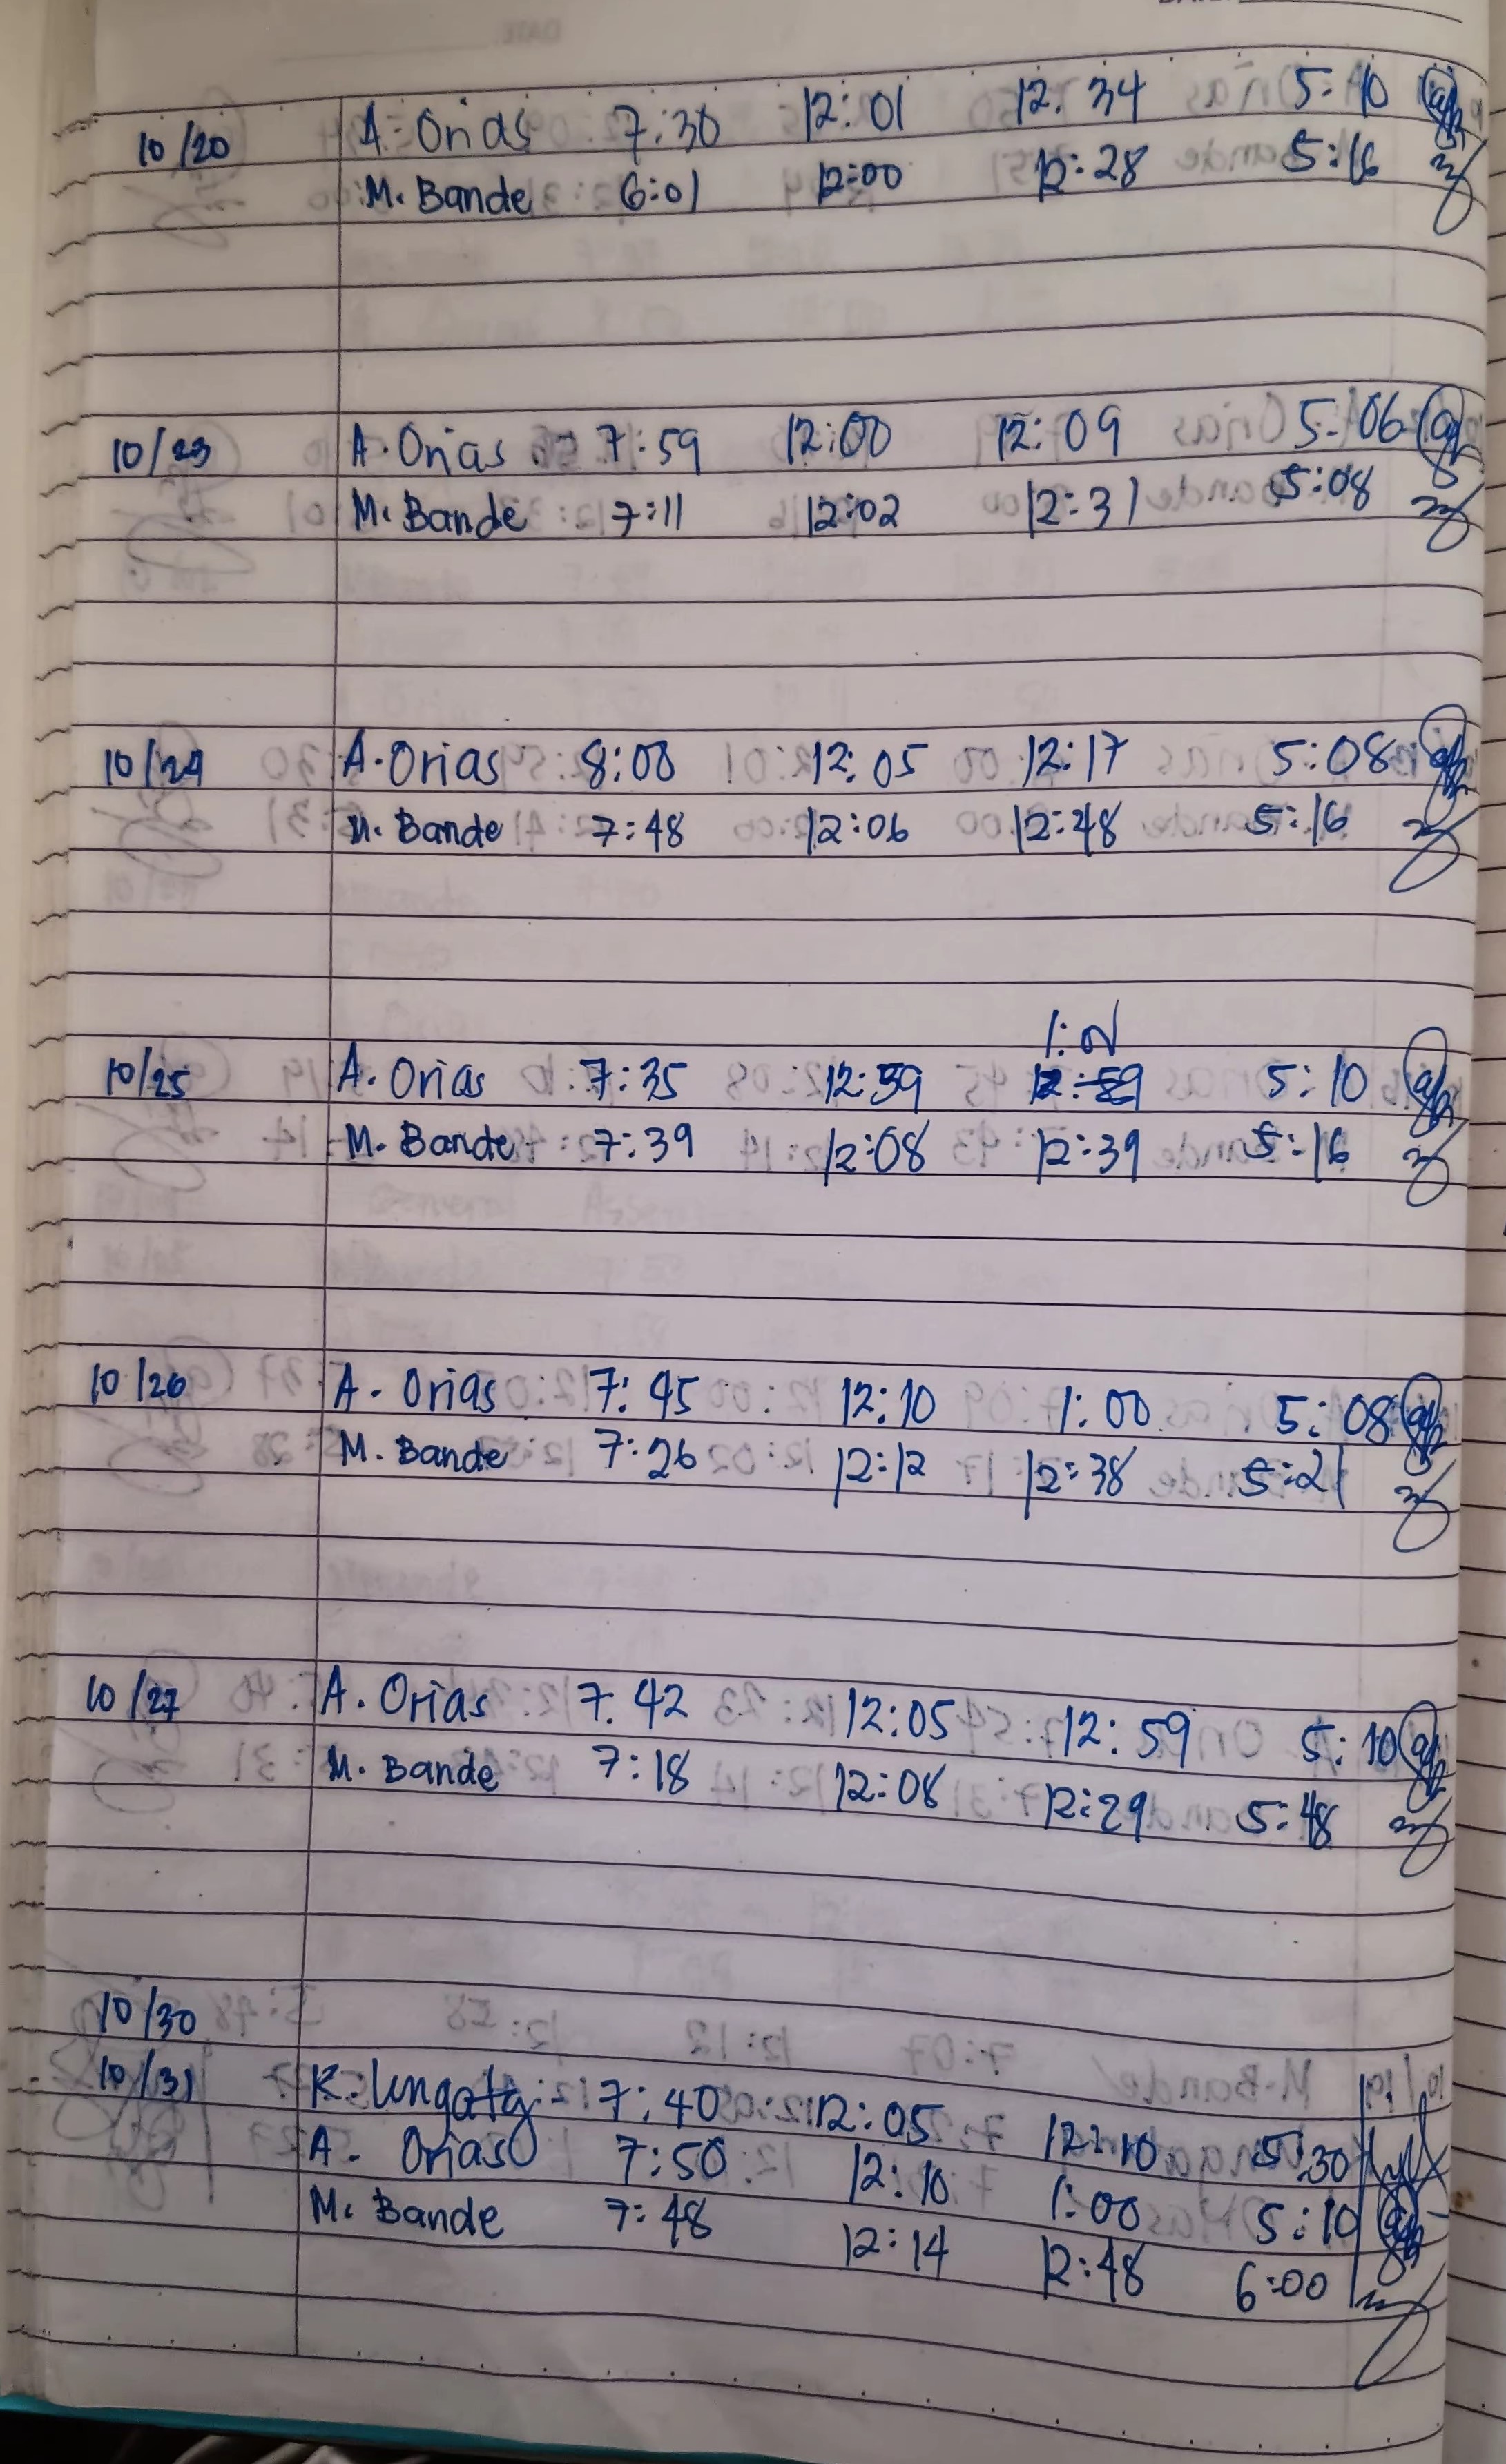 10/20 A. Orias 7:30 12:01 12:34 5:10
M. Bande 6:01 12:00 12:28 5:16
10/23 A. Orias 7:59 12:00 12:09 5:06
M. Bande 7:11 12:02 12:31 5:08
10/24 A. Orias 8:00 12:05 12:17 5:08
M. Bande 7:48 12:06 12:48 5:16
10/25 A. Orias 7:35 12:39 5:10
M. Bande 7:39 12:08 12:39 5:16
10/26 A. Orias 7:45 12:10 1:00 5:08
M. Bande 7:26 12:12 12:38 5:21
10/27 A. Orias 7:42 12:05 12:59 5:10
M. Bande 7:18 12:08 12:29 5:48
10/30
10/31 K. 7:40 12:05 12:10 5:30
A. Orias 7:50 12:10 1:00 5:10
M. Bande 7:48 12:14 12:48 6:00